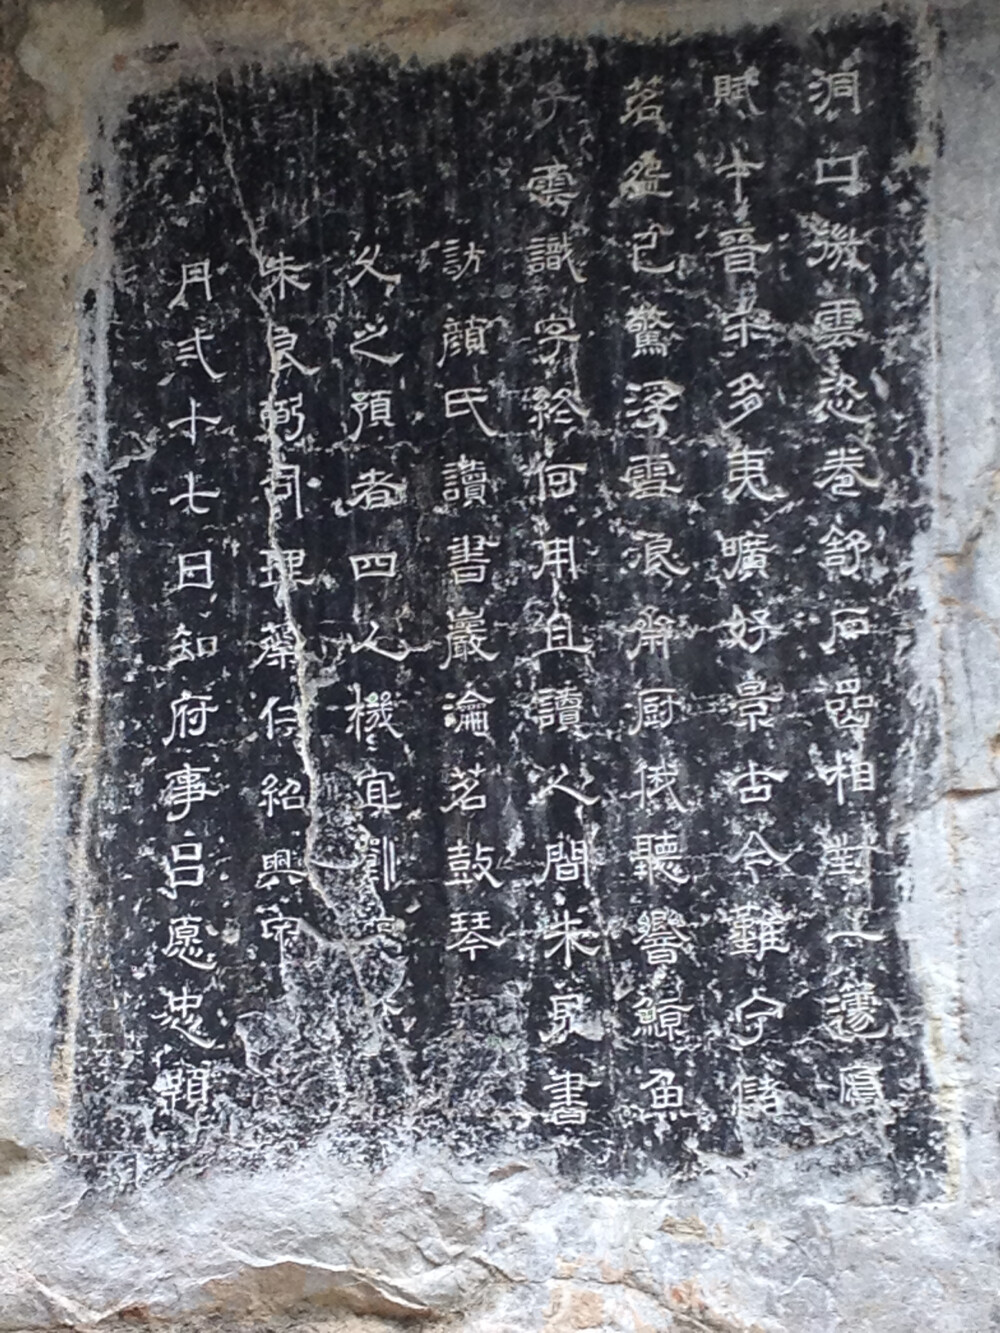 洞口微雲恣卷舒石相對一蘧廬
賦才晉宋多夷曠好景古今難宁儲
茗盌已驚浮雪浪齋厨俄聽響鯨魚
子雲識字終何用且讀人間未見書
訪顏氏讀書巖瀹茗鼓琴
久之預者四人機宜劉
朱良弼司理蔡紹興甲
月弍十七日知府事呂愿忠題